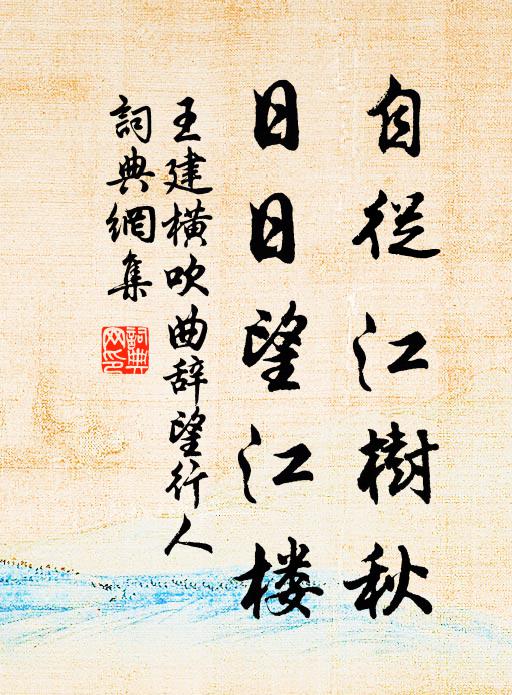 自從江樹秋
日日望江楼
王建橫吹曲辞望行人
詞典網集
詞典網印